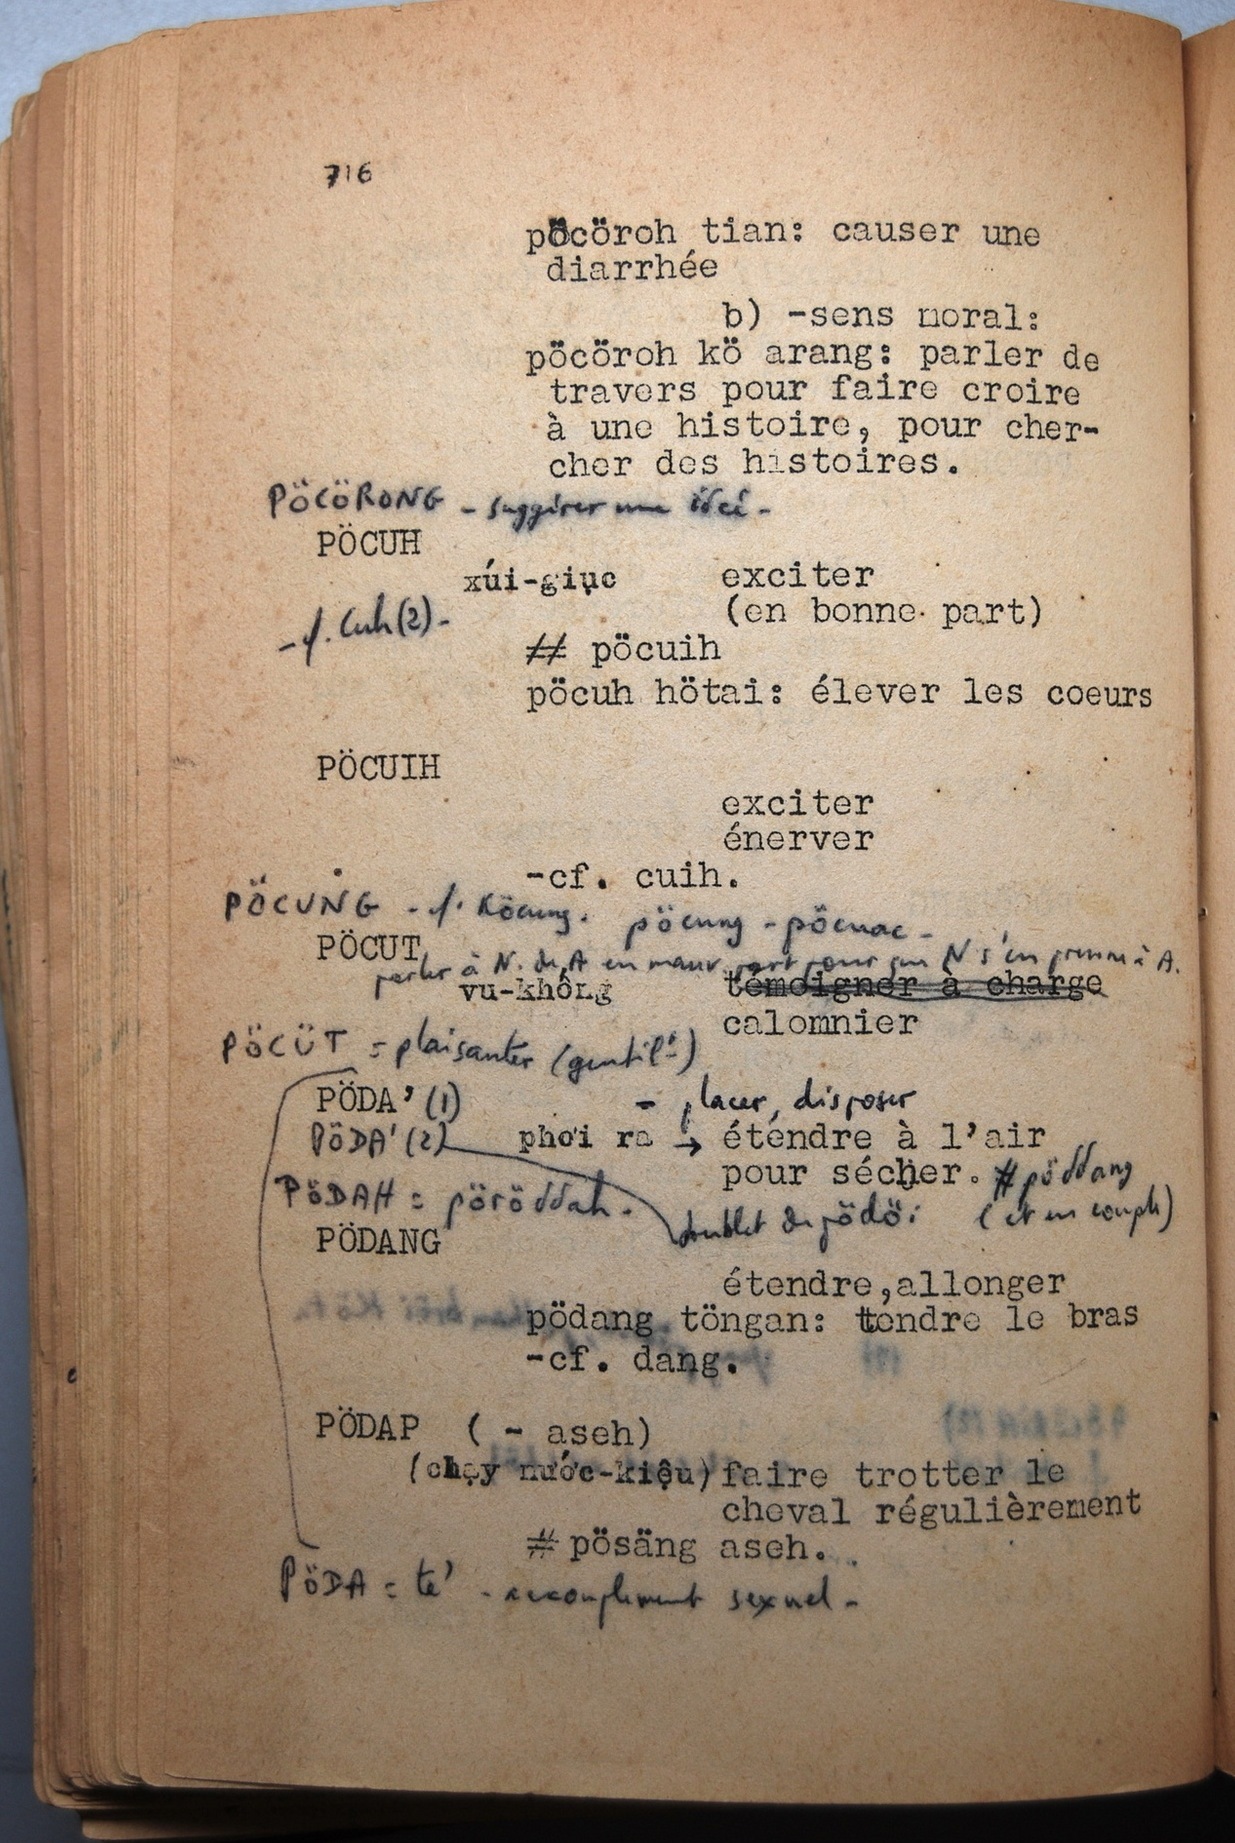 716
pöcöroh tian: causer une
diarrhée
b) -sens moral:
pöcöroh kö arang: parler de
travers pour faire croire
à une histoire, pour cher-
cher des histoires.
PÖCÖRONG - suggérer une idée -
PÖCUH
xúi-giục exciter
(en bonne part)
- cf. Cuh (2) -
## pöcuih
pöcuh hötai: élever les coeurs
PÖCUIH
exciter
énerver
-cf. cuih.
PÖCUNG - cf. Köcung. pöcung - pöcuac -
PÖCUT
parler à N. de A en mauv. part pour que N s'en prenne à A.
vu-khống témoigner à charge
calomnier
PÖCÜT = plaisanter (gentilt)
PÖDA' (1) - placer, disposer
PÖDA' (2) phơi ra → étendre à l'air
pour sécher. # pöddang
PÖDAH = pöröddah. doublet de pödöi (et en couple)
PÖDANG
étendre, allonger
pödang töngan: tendre le bras
-cf. dang.
PÖDAP ( - aseh)
(chạy nước-kiệu) faire trotter le
cheval régulièrement
# pösäng aseh.
PÖDA = te' - accouplement sexuel -